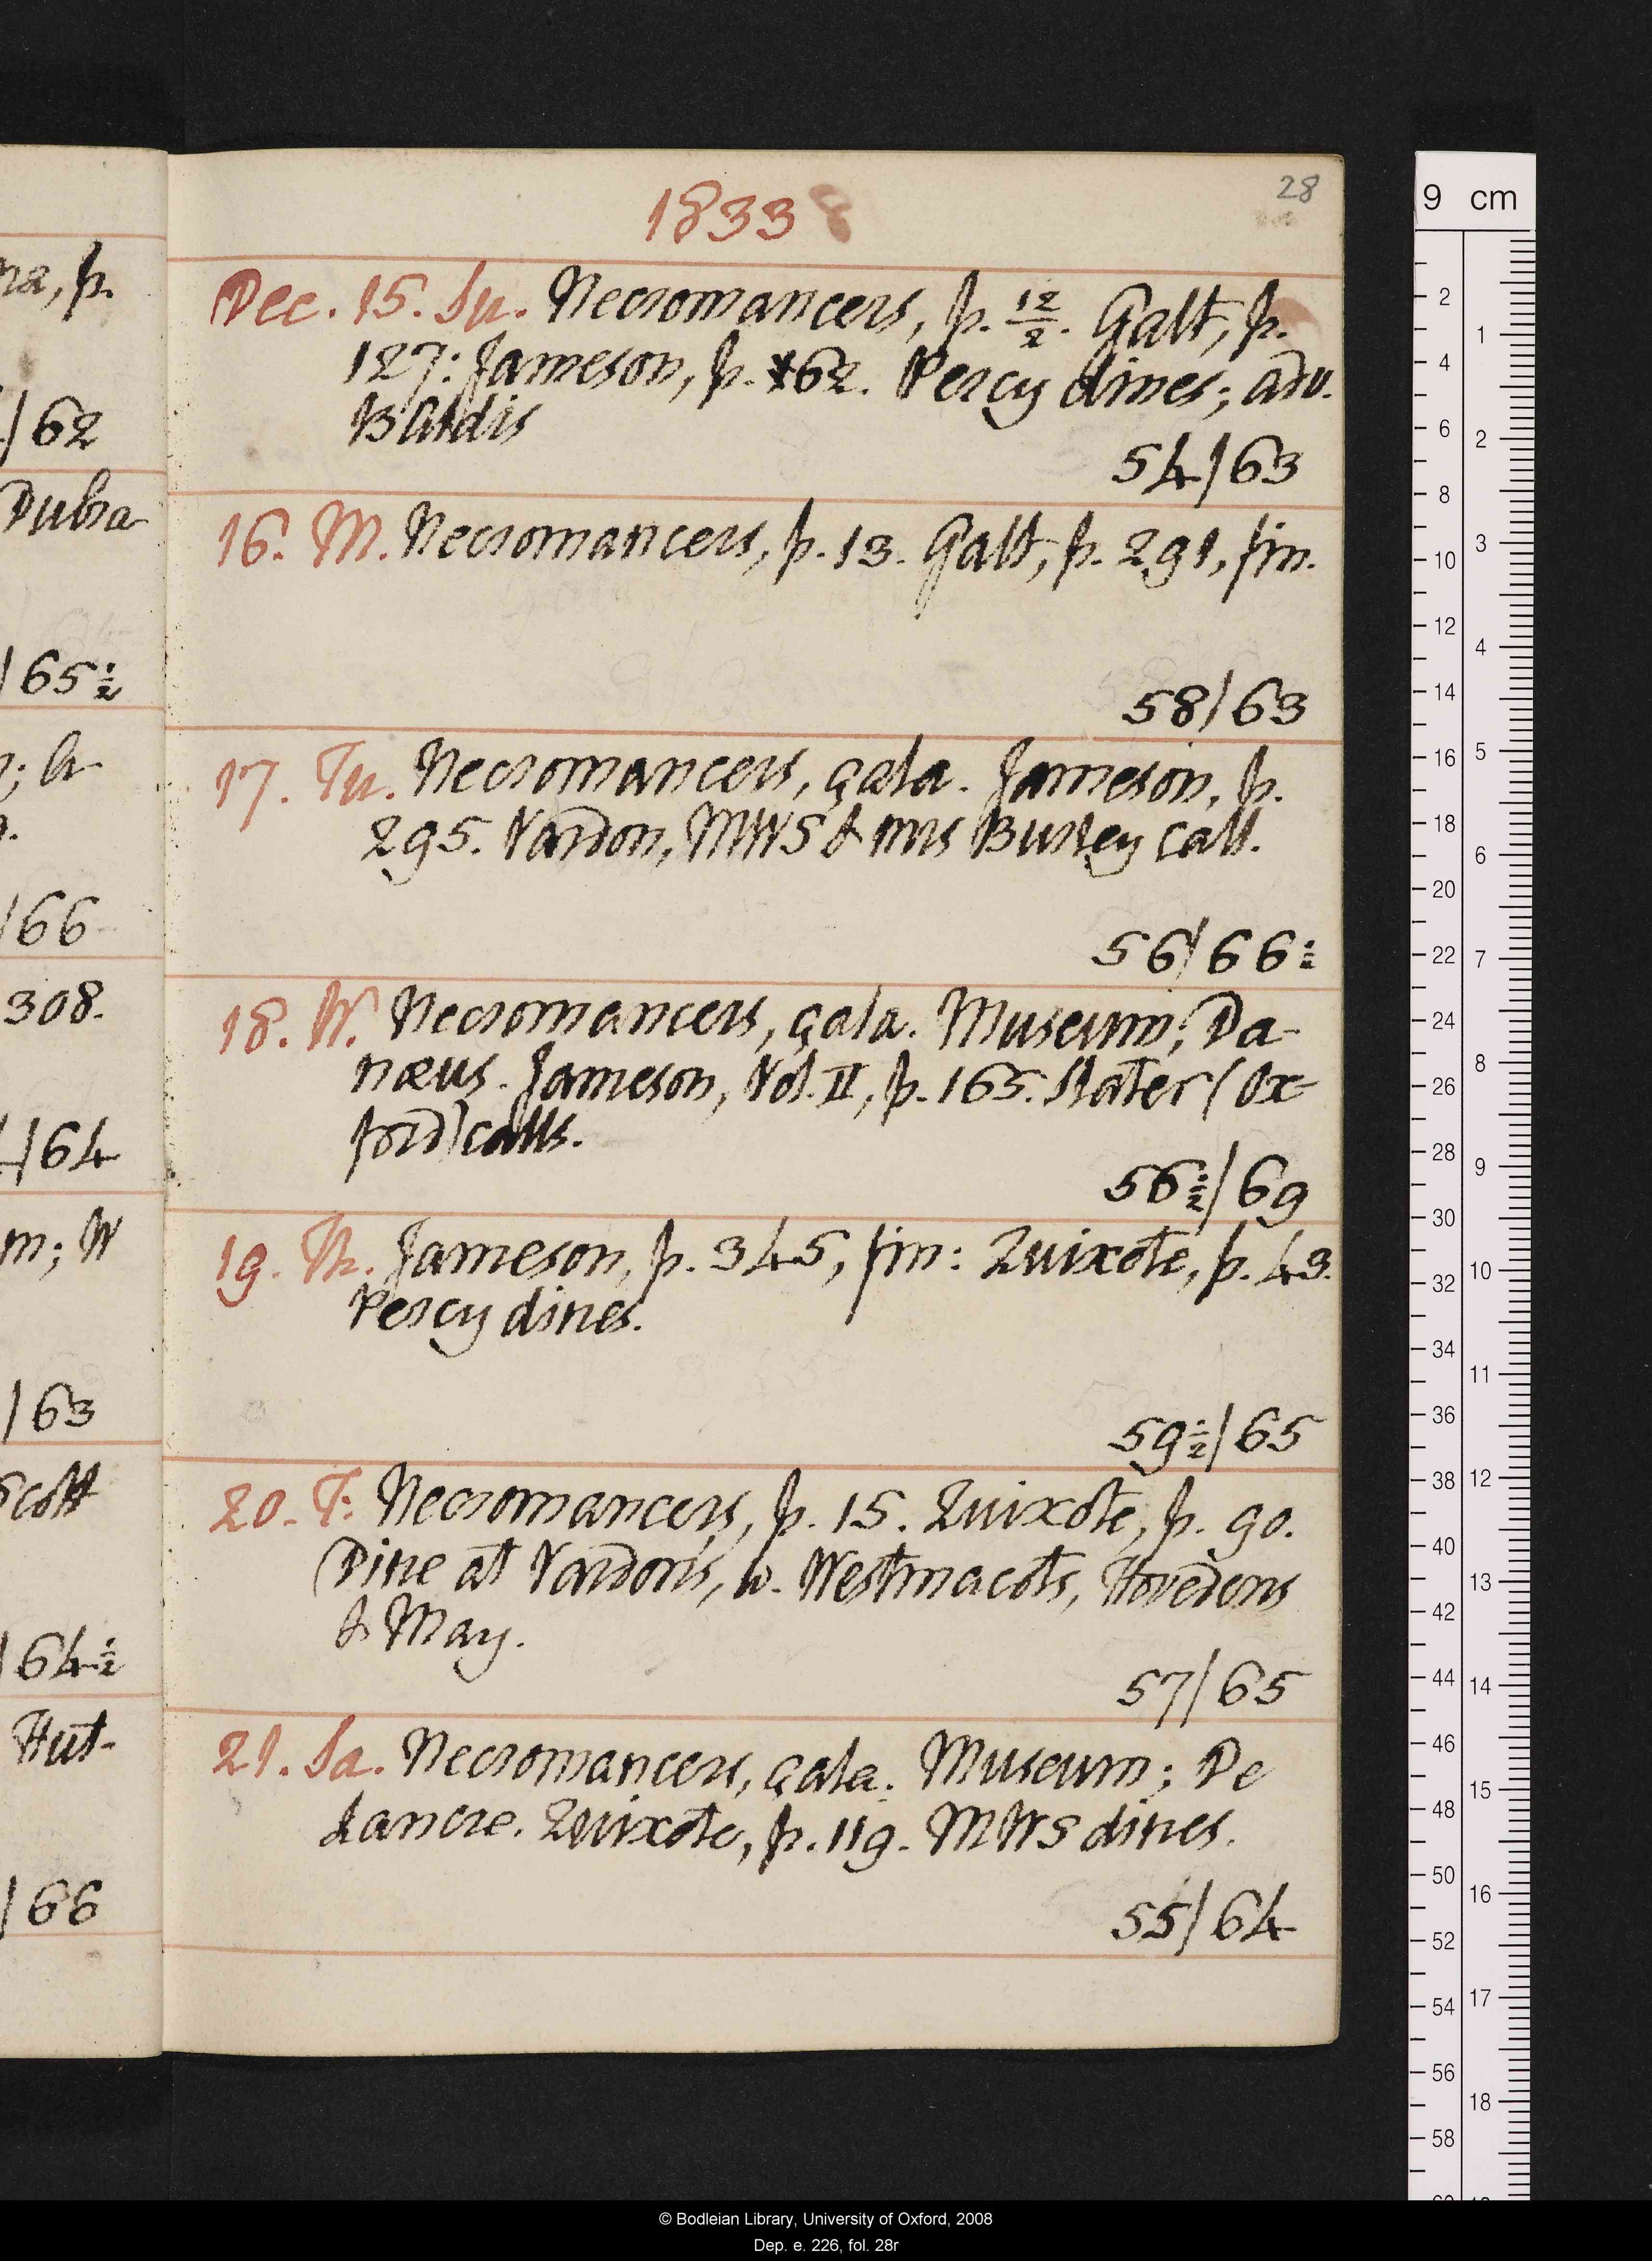 1833
28
Dec. 15. Su. Necromancers, p. 12/2. Galt, p.
127: Jameson, p. 162. Percy dines; adv.
Baldis
54/63
16. M. Necromancers, p. 13. Galt, p. 291, fin.
58/63
17. Tu. Necromancers, çala. Jameson, p.
295. Vardon, MWS & Mrs Burley call.
56/66½
18. W. Necromancers, çala. Museum; Da-
næus. Jameson, Vol. II, p. 165. Slater (Ox-
ford) calls.
56½/69
19. Th. Jameson, p. 345, fin: Quixote, p. 43.
Percy dines.
59½/65
20. F. Necromancers, p. 15. Quixote, p. 90.
Dine at Vardon's, w. Westmacots, Hovedens
& May.
57/65
21. Sa. Necromancers, çala. Museum; De
Lancre. Quixote, p. 119. MWS dines.
55/64
na, p.
/62
Dubra-
/65½
/66
308.
/64
m; W
/63
Scott
/64½
Hut-
/66
9 cm
2
4
6
8
10
12
14
16
18
20
22
24
26
28
30
32
34
36
38
40
42
44
46
48
50
52
54
56
58
1
2
3
4
5
6
7
8
9
10
11
12
13
14
15
16
17
18
© Bodleian Library, University of Oxford, 2008
Dep. e. 226, fol. 28r